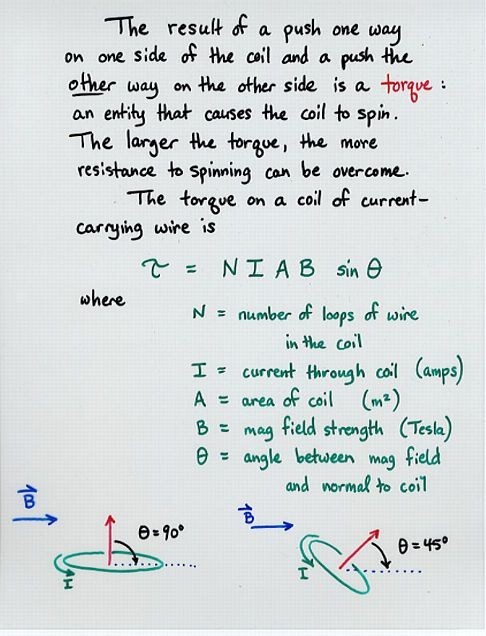 The result of a push one way
on one side of the coil and a push the
other way on the other side is a torque :
an entity that causes the coil to spin.
The larger the torque, the more
resistance to spinning can be overcome.
The torque on a coil of current-
carrying wire is
τ = N I A B sin θ
where
N = number of loops of wire
in the coil
I = current through coil (amps)
A = area of coil (m²)
B = mag field strength (Tesla)
θ = angle between mag field
and normal to coil
B⃗
θ = 90°
I
B⃗
θ = 45°
I